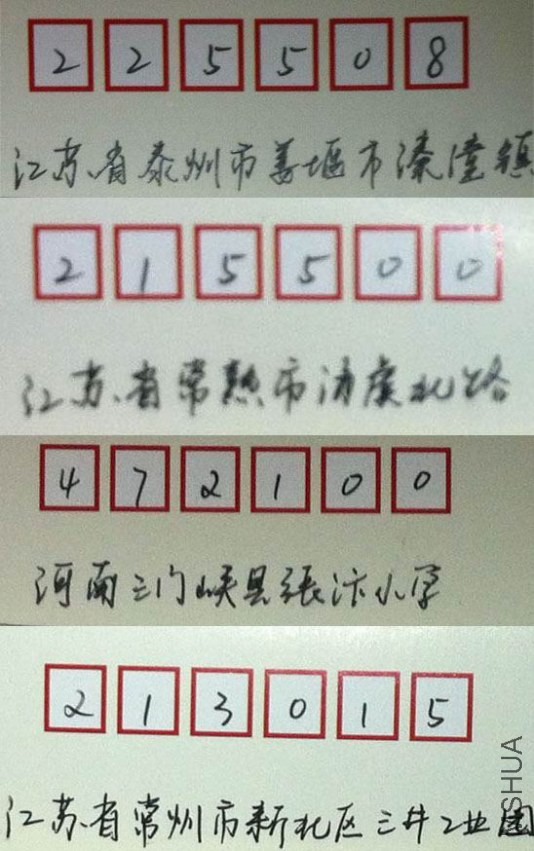 225508
江苏省泰州市姜堰市溱潼镇
215500
江苏省常熟市海虞北路
472100
河南三门峡县张汴小学
213015
江苏省常州市新北区三井工业园
SHUA